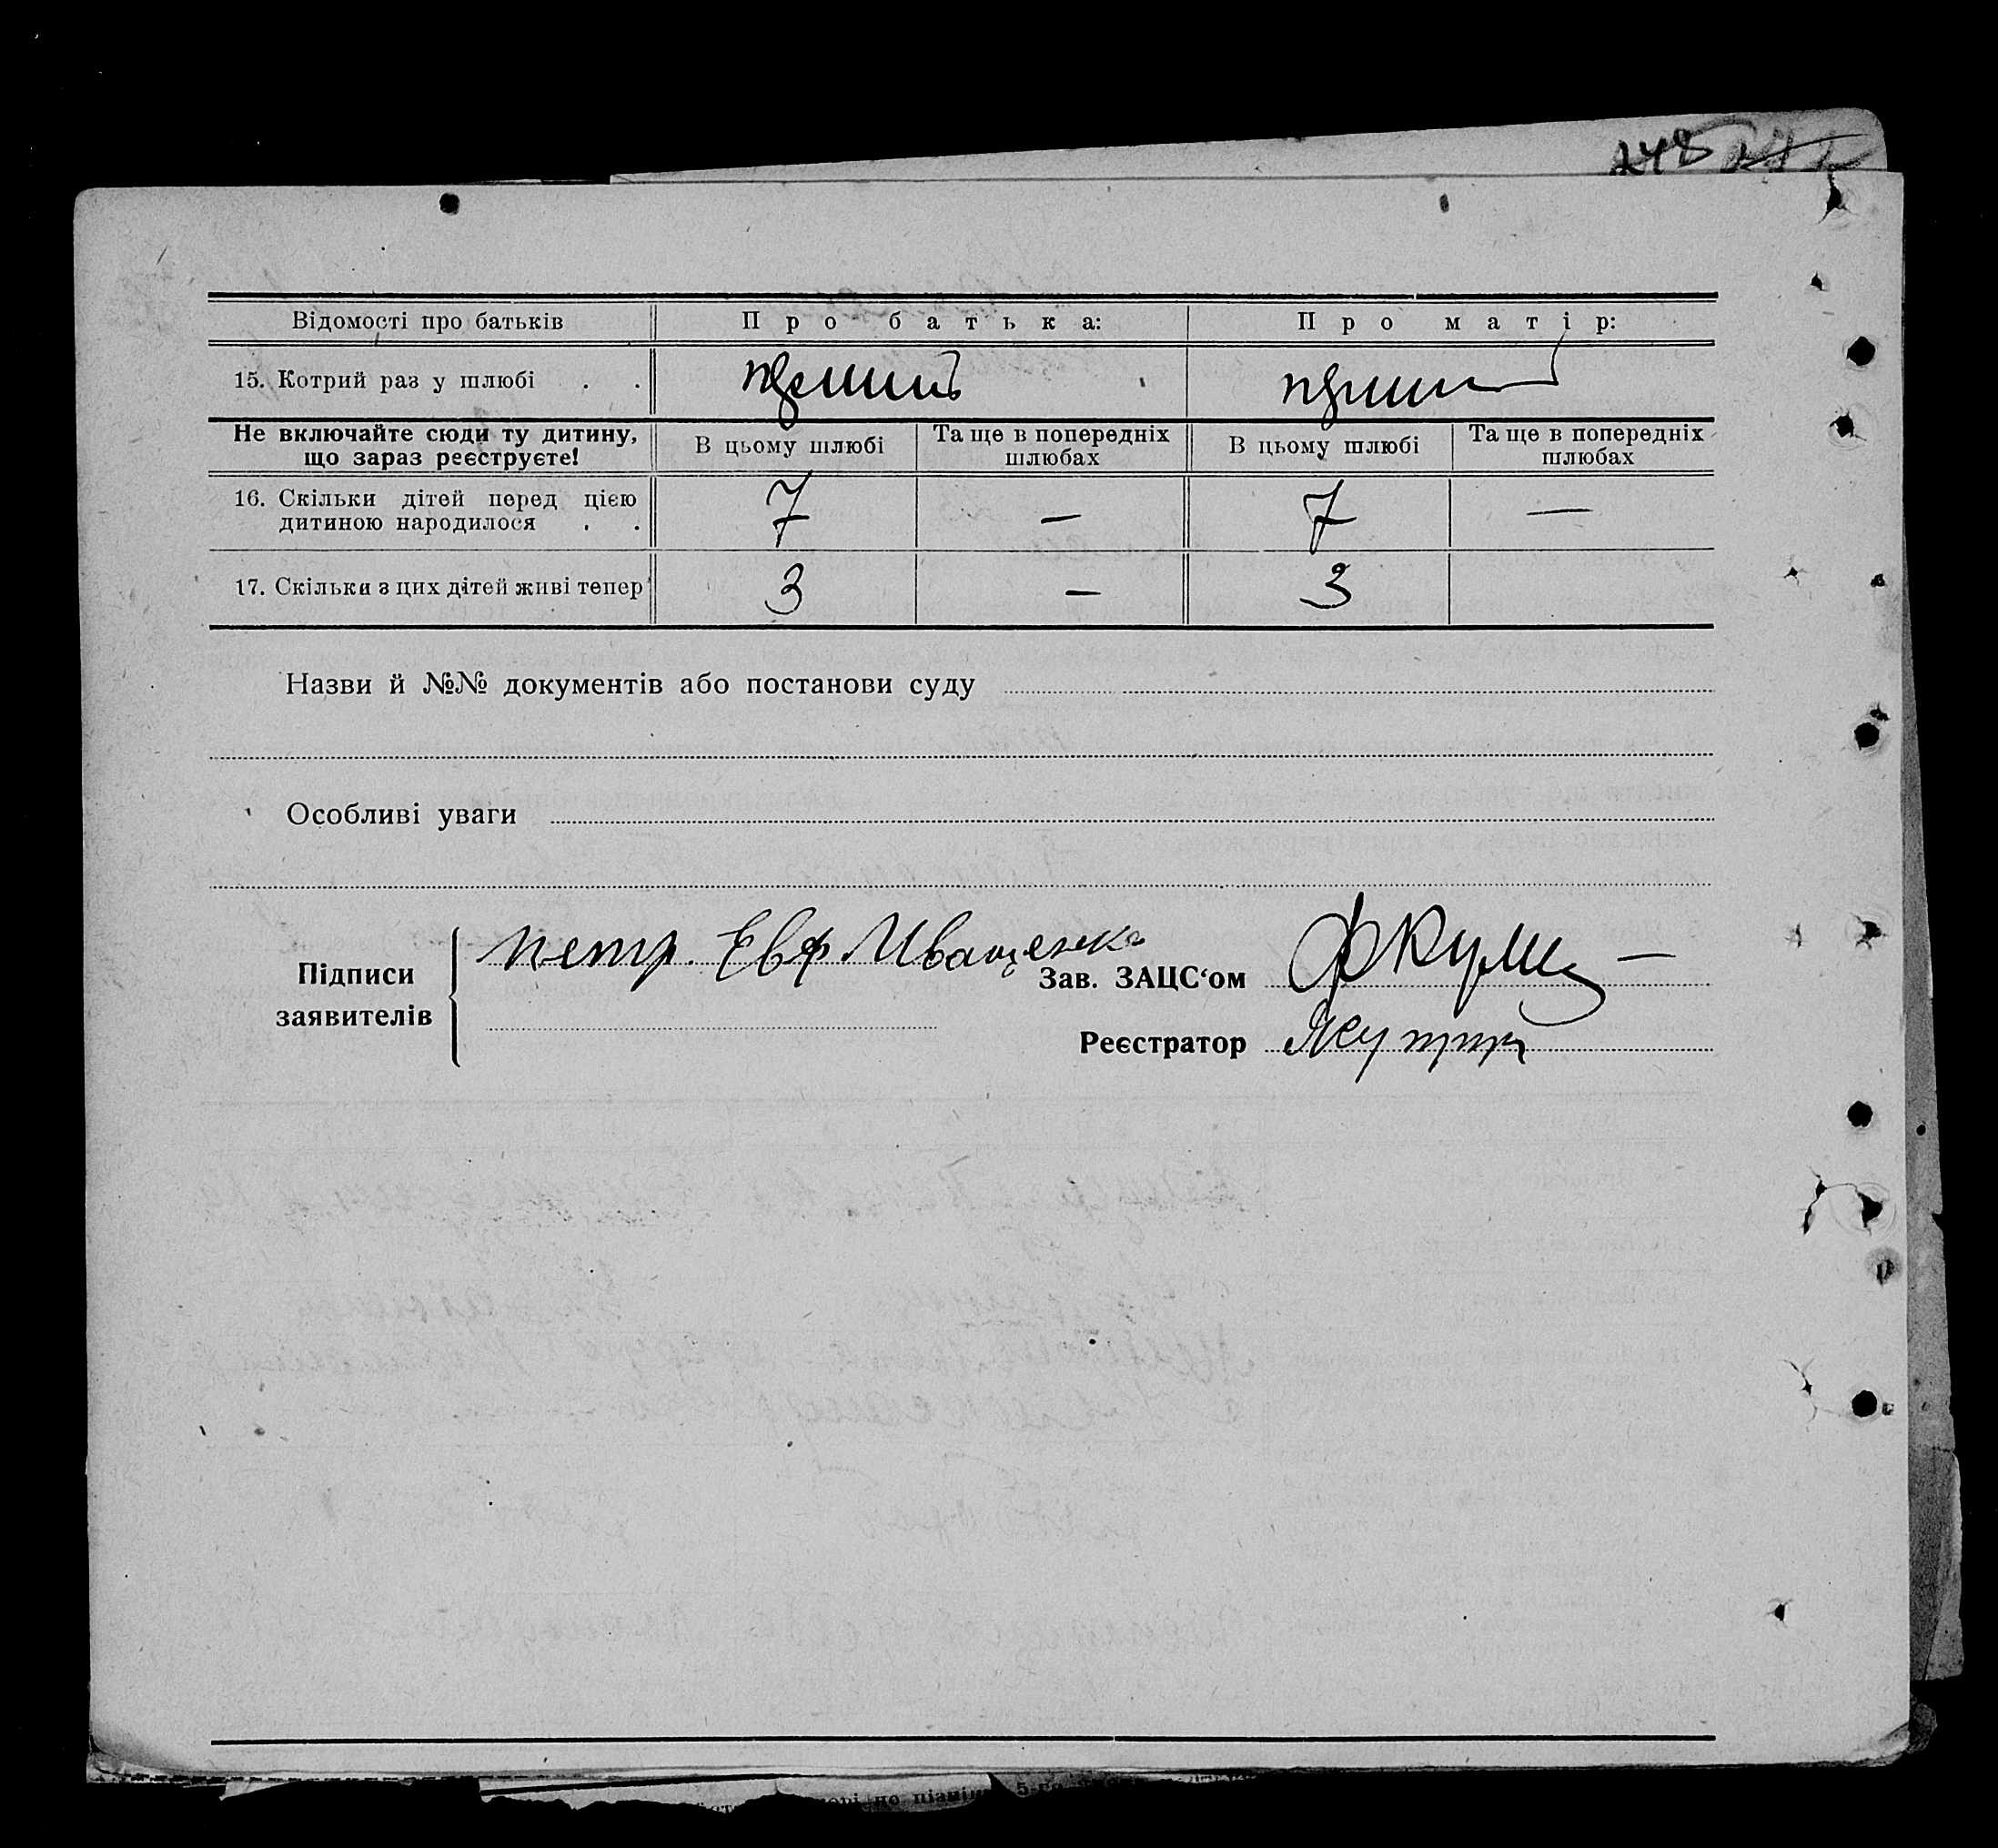 248
Відомості про батьків Про батька: Про матір:
15. Котрий раз у шлюбі . .
Не включайте сюди ту дитину, що зараз реєструєте! В цьому шлюбі Та ще в попередніх шлюбах В цьому шлюбі Та ще в попередніх шлюбах
16. Скільки дітей перед цією
дитиною народилося . . 7 — 7 —
17. Скільки з цих дітей живі тепер 3 — 3
Назви й №№ документів або постанови суду
Особливі уваги
Підписи заявителів петр. Евф Иващенко
Зав. ЗАЦС‘ом
Реєстратор